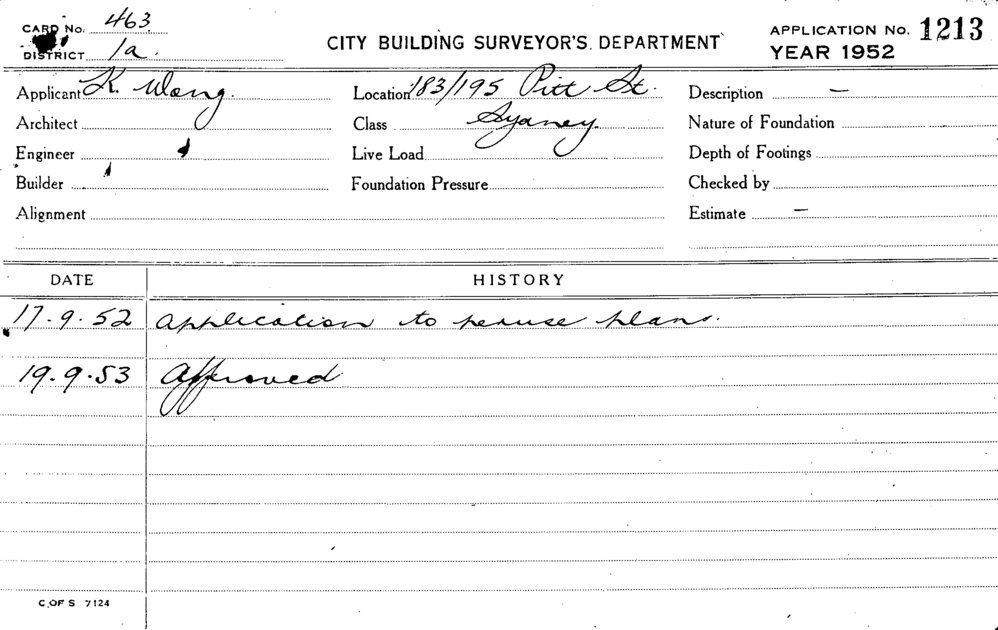 CARD No. 463
DISTRICT 1a.
CITY BUILDING SURVEYOR'S DEPARTMENT
APPLICATION No. 1213
YEAR 1952
Applicant K. Wong.
Location 183/195 Pitt St.
Description —
Architect
Class Sydney.
Nature of Foundation
Engineer
Live Load
Depth of Footings
Builder
Foundation Pressure
Checked by
Alignment
Estimate —
DATE HISTORY
17.9.52 Application to peruse plans.
19.9.53 Approved
C. OF S 7124